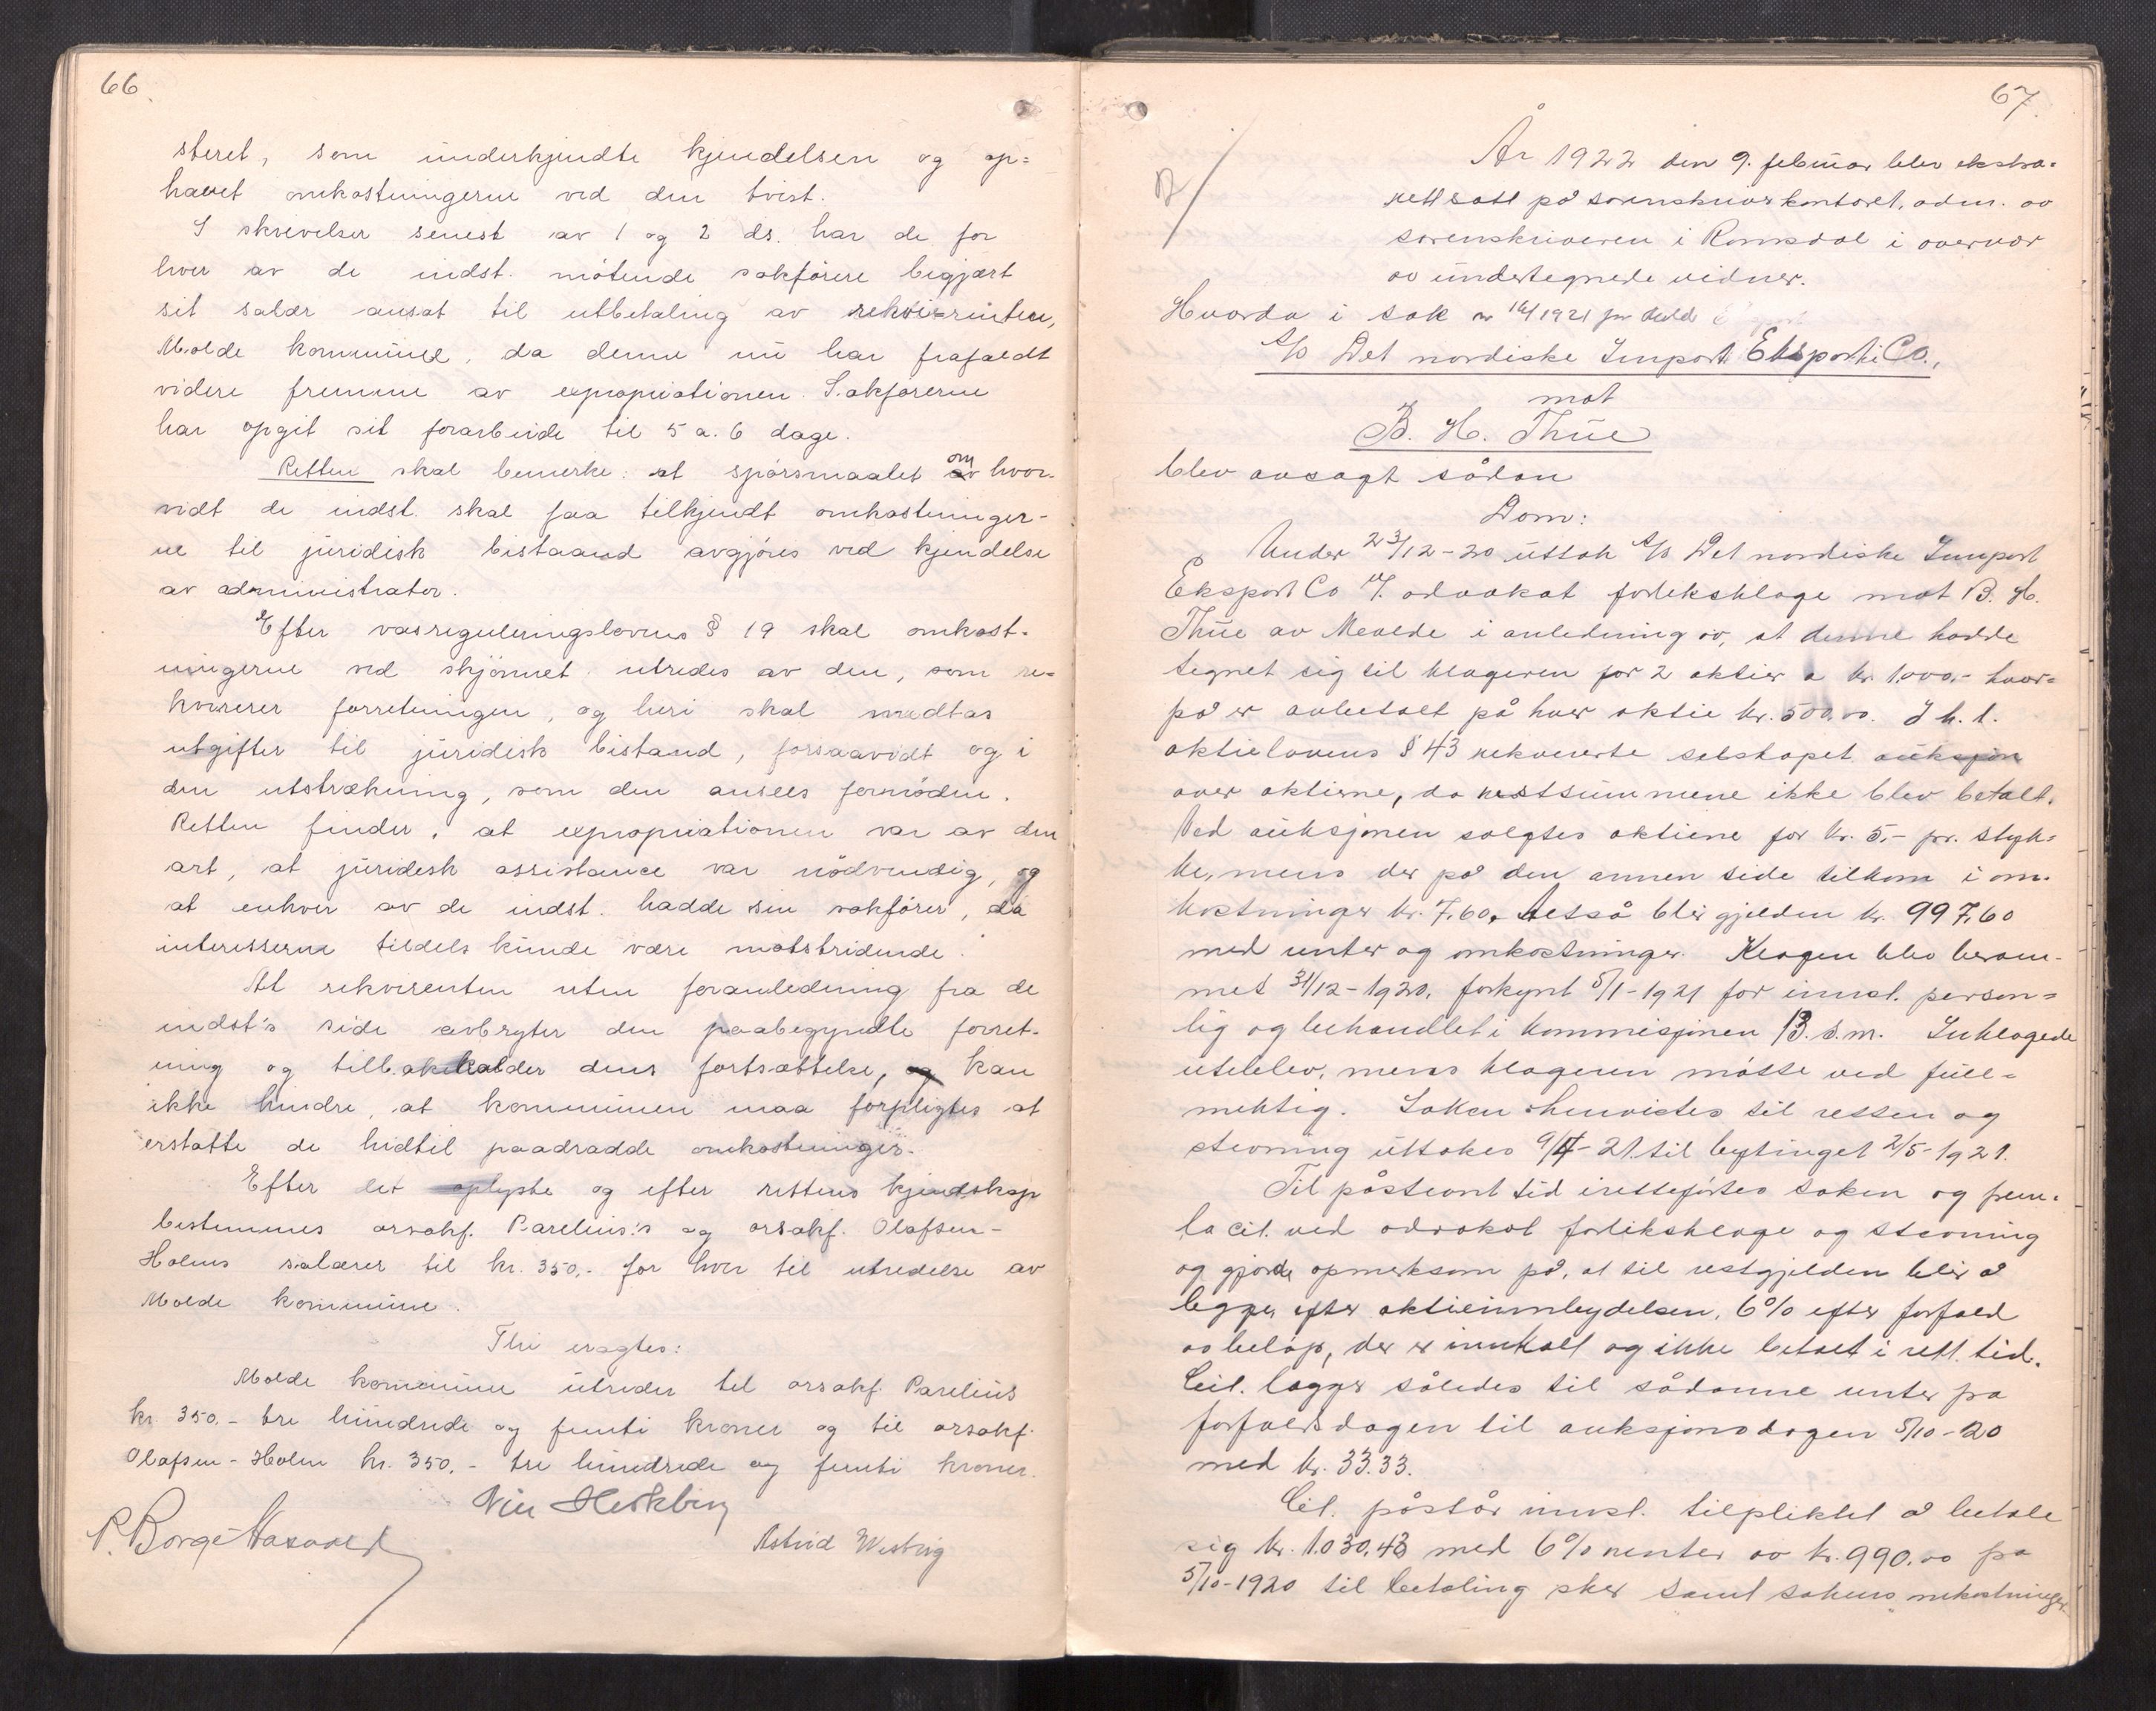 66.
steret, som underkjendte kjendelsen og op=
hævet omkostningerne ved den tvist.
I skrivelser senest av 1 og 2 ds. har de for
hver av de indst. mötende sakförere begjært
sit salær ansat til utbetaling av rekvirenten,
Molde kommune, da denne nu har frafaldt
videre fremme av expropriationen. Sakförerne
har opgit sit forarbeide til 5 a. 6 dage.
Retten skal bemerke: at spörsmaalet om hvor-
vidt de indst. skal faa tilkjendt omkostninger-
ne til juridisk bistaand avgjöres ved kjendelse
av administrator.
Efter vasreguleringslovens § 19 skal omkost-
ningerne ved skjönnet utredes av den, som re-
kvirerer forretningen, og heri skal medtas
utgifter til juridisk bistand, forsaavidt og i
den utstrækning, som den ansees fornöden.
Retten finder, at expropriationen var av den
art, at juridesk assistance var nödvendig, og
at enhver av de indst. hadde sin sakförer, da
interesserne tildels kunde være motstridende.
At rekvirenten uten foranledning fra de
indst's side avbryter den paabegyndte forret-
ning og tilbakekalder dens fortsættelse, kan
ikke hindre, at kommunen maa forpligtes at
erstatte de hidtil paadradde omkostninger.
Efter det oplyste og efter rettens kjendskap
bestemmes orsakf. Parelius's og orsakf. Olafsen-
Holms salærer til kr. 350,- for hver til utredelse av
Molde kommune.
Thi eragtes:
Molde kommune utreder til orsakf. Parelius
kr. 350.- tre hundrede og femti kroner og til orsakf.
Olafsen-Holm kr. 350.- tre hundrede og femti kroner.
P. Borge
Astrid Westing
67.
År 1922 den 9. februar blev ekstra-
rett satt på sorenskriverkontoret, adm. av
sorenskriveren i Romsdal i overvær
av undertegnede vidner.
Hvorda i sak nr 16/1921 for Molde
A/S Det nordiske Import Eksport Co.,
mot
B. H. Thue
blev avsagt sådan
Dom:
Under 23/12-20 uttok A/S Det nordiske Import
Eksport Co v/. advokat forliksklage mot B. H.
Thue av Molde i anledning av, at denne hadde
tegnet sig til klageren for 2 aktier a kr. 1.000,- hvor-
på er anbetalt på hver aktie kr. 500.00. I h. t.
aktielovens § 43 rekvirerte selskapet auksjon
over aktierne, da restsummene ikke blev betalt.
Ved auksjonen solgtes aktiene for kr. 5.- pr. styk-
ke, mens der på den annen side tilkom i om-
kostninger kr. 7,60. Altså blir gjelden kr. 997,60
med renter og omkostninger. Klagen blev beram-
met 31/12-1920, forkynt 5/1-1921 for innst. person-
lig og behandlet i kommisjonen 13. s.m. Inklagede
uteblev, mens klageren møtte ved full-
mektig. Saken henvistes til retten og
stevning uttokes 9/4-21 til bytinget 2/5-1921.
Til påstevnt tid iretteførtes saken og frem-
la cit. ved advokat forliksklage og stevning
og gjorde opmerksom på, at til restgjelden blir å
legge, efter aktieinnbydelsen, 6% efter forfald
av beløp, der er innkalt og ikke betalt i rett tid.
Cit. lægger således til sådanne renter fra
forfaldsdagen til auksjonsdagen 5/10-20
med kr. 33.33.
Cit. påstår innst. tilpliktet å betale
sig kr. 1.030,43 med 6% renter av kr. 990.00 fra
5/10-1920 til betaling skjer samt sakens omkostninger.